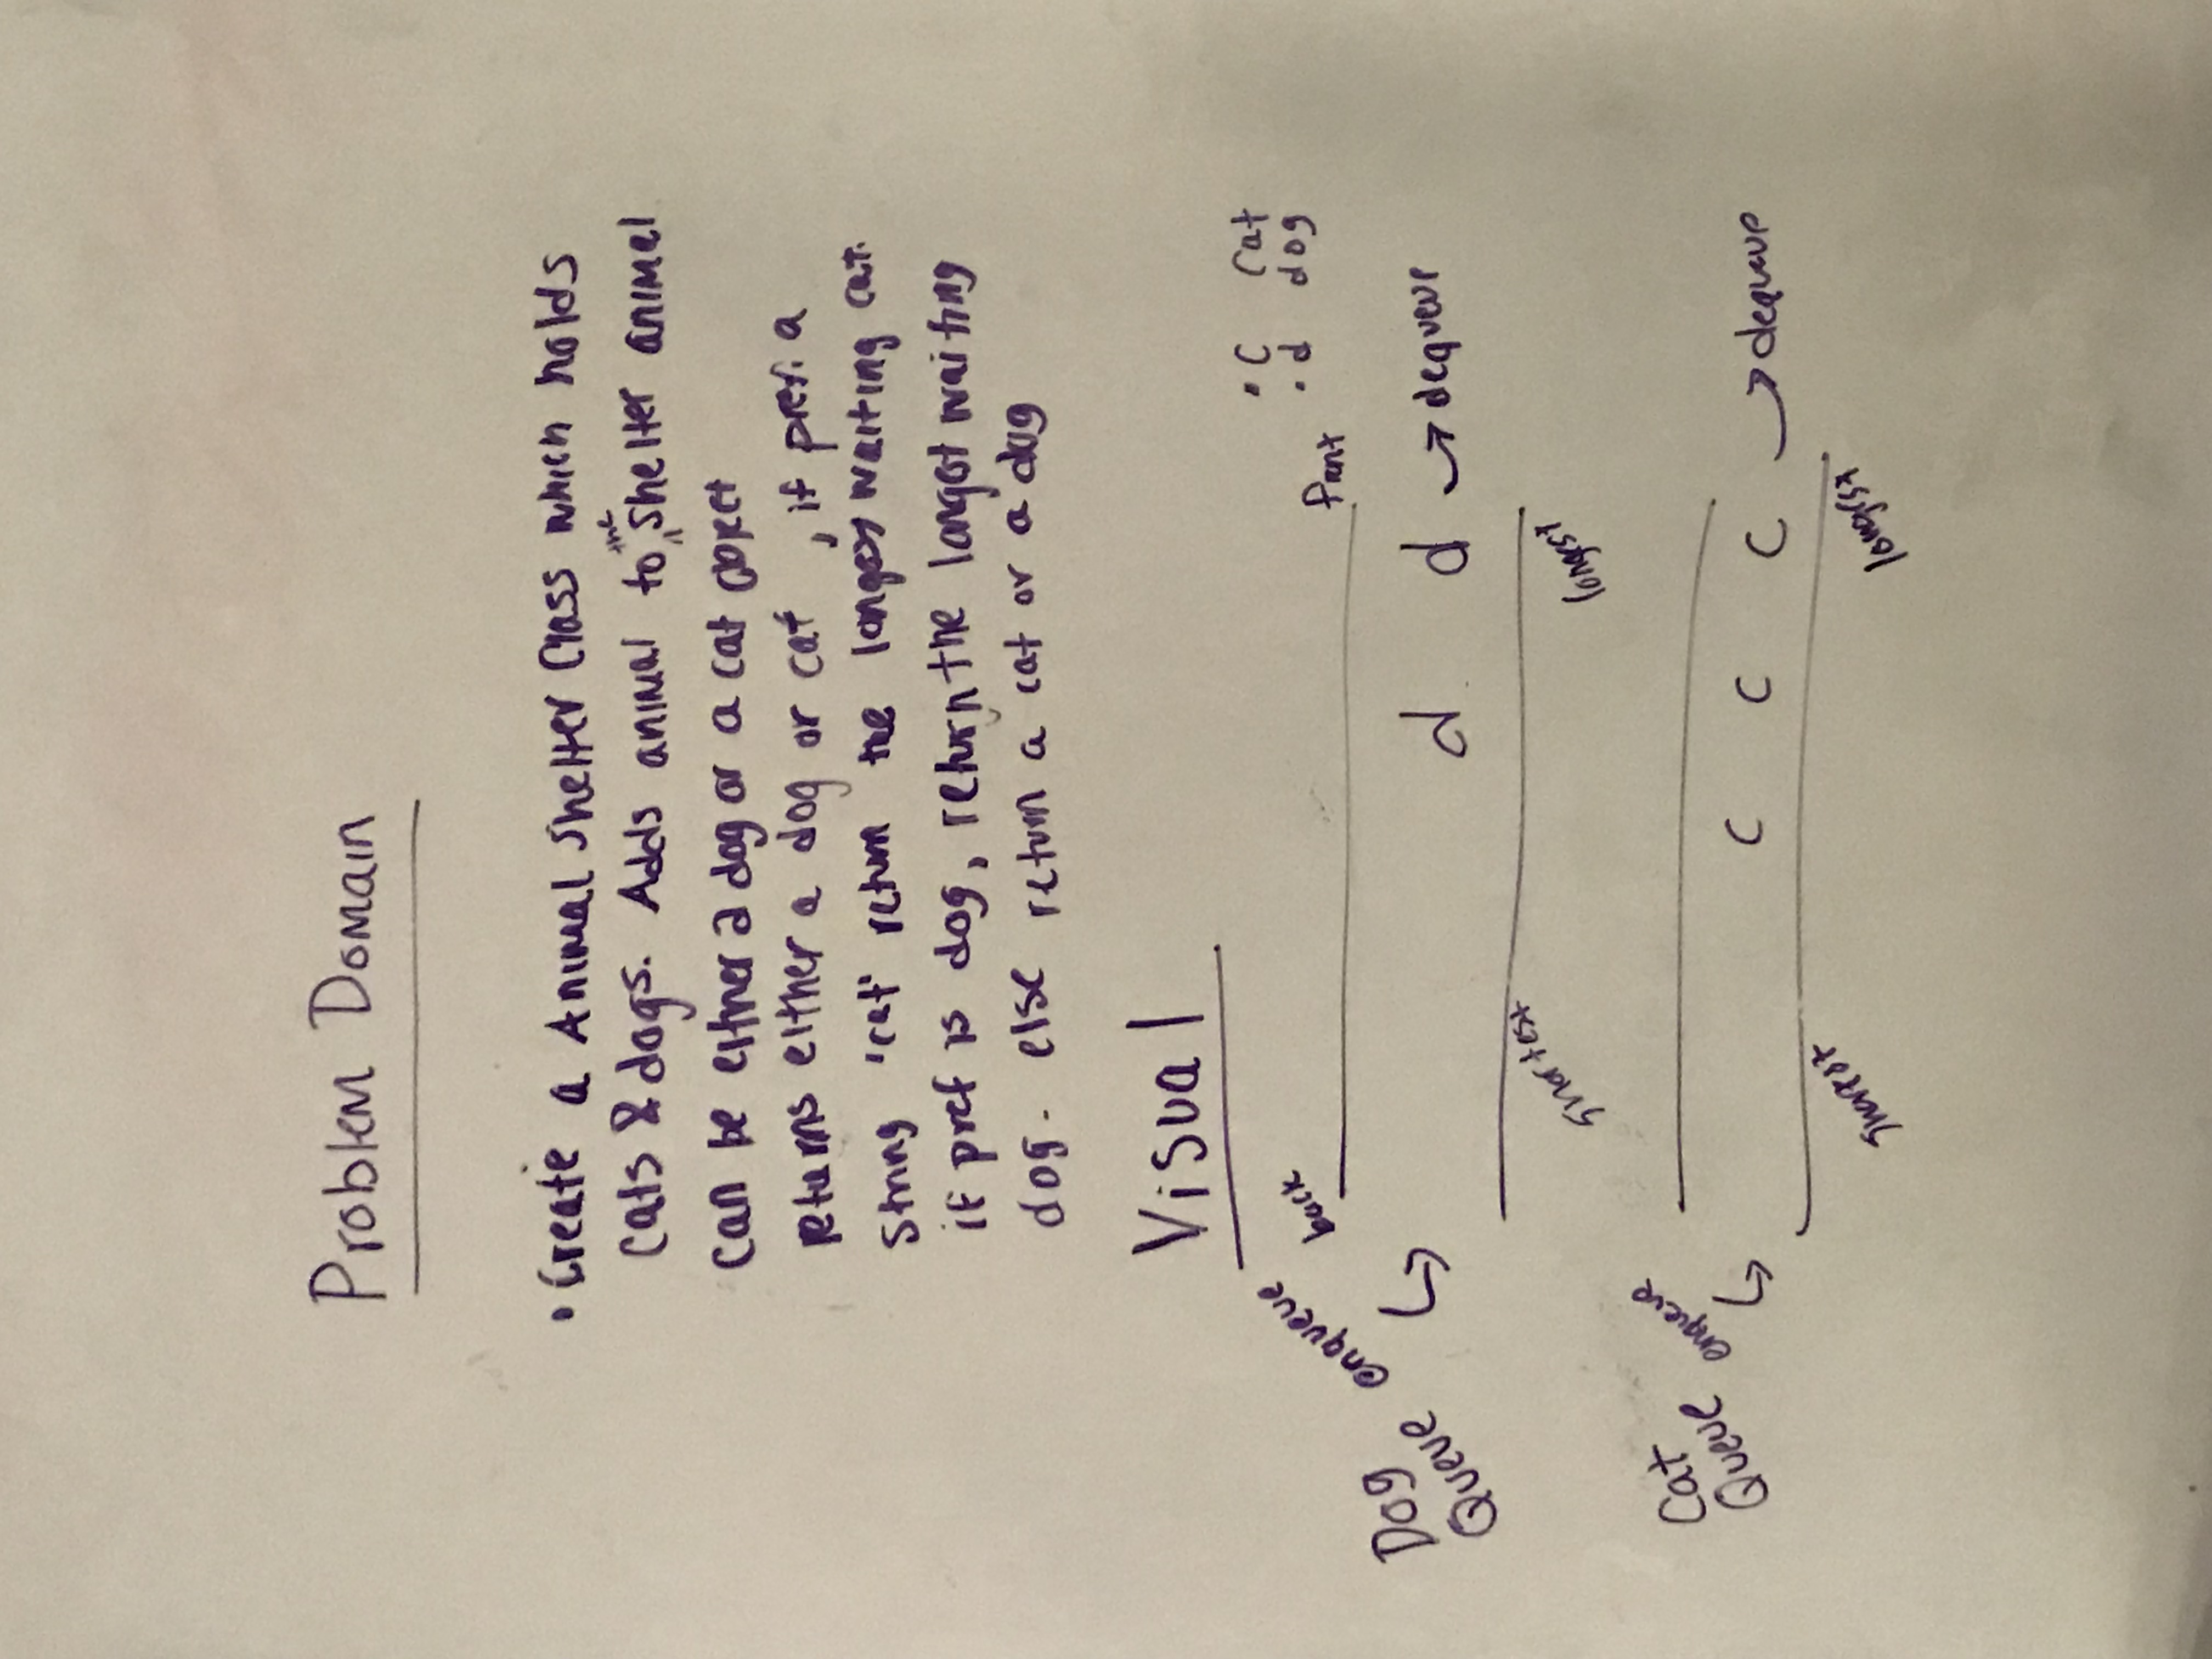 Problem Domain
• Create a Animal Shelter Class which holds
cats & dogs. Adds animal to the shelter animal
can be either a dog or a cat object
returns either a dog or cat , if pref. a
string 'cat' return the longest waiting cat.
if pref is dog, return the longest waiting
dog. else return a cat or a dog
Visual
• C Cat
• d dog
back
front
Dog
Queue
enqueue
d d → dequeue
shortest
longest
Cat
Queue
enqueue
C C C → dequeue
shortest
longest